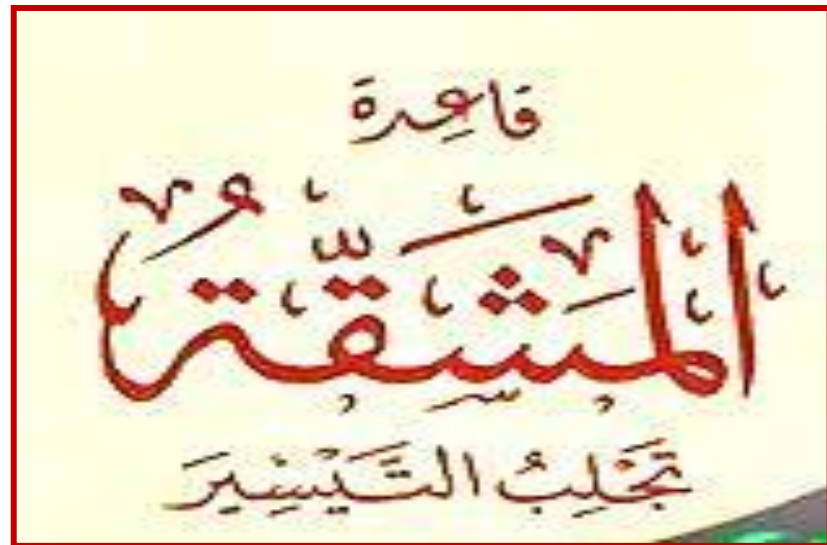 قاعدة
المَشَقَّةُ
تَجْلِبُ التَّيْسِيرَ